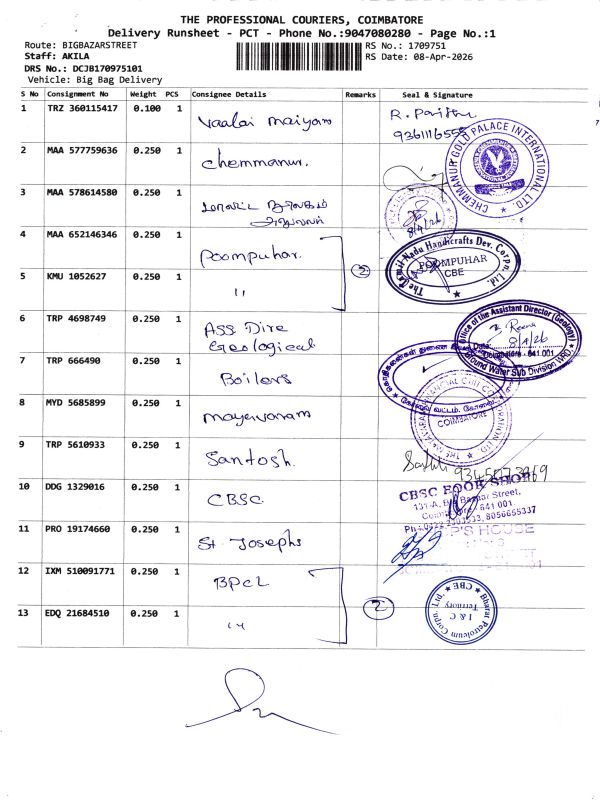 THE PROFESSIONAL COURIERS, COIMBATORE
Delivery Runsheet - PCT - Phone No.:9047080280 - Page No.:1
Route: BIGBAZARSTREET
Staff: AKILA
DRS No.: DCJB170975101
Vehicle: Big Bag Delivery
RS No.: 1709751
RS Date: 08-Apr-2026
S No Consignment No Weight PCS Consignee Details Remarks Seal & Signature
1 TRZ 360115417 0.100 1 Vaalai maiyam R.
2 MAA 577759636 0.250 1 Chemmanur.
CHEMMANUR GOLD PALACE INTERNATIONAL LTD.
3 MAA 578614580 0.250 1
8/4/26
4 MAA 652146346 0.250 1 Poompuhar.
The Tamil Nadu Handicrafts Dev. Corpn. Ltd.
POOMPUHAR
CBE
5 KMU 1052627 0.250 1 "
2
6 TRP 4698749 0.250 1 Ass Dire
Geological
Office of the Assistant Director (Geology)
Reena
Date: 8/4/26
Coimbatore - 641 001.
Ground Water Sub Division WRD
7 TRP 666490 0.250 1 Boilers
8 MYD 5685899 0.250 1 mayavaram
COIMBATORE
9 TRP 5610933 0.250 1 Santosh.
10 DDG 1329016 0.250 1 CBSC
CBSC BOOK SHOP
131-A, Big Bazaar Street,
Coimbatore - 641 001.
8056655337
11 PRO 19174660 0.250 1 St. Josephs
P'S HOUSE
12 IXM 510091771 0.250 1 BPCL
13 EDQ 21684510 0.250 1 "
2
Bharat Petroleum Corpn. Ltd., CBE
I & C
Territory